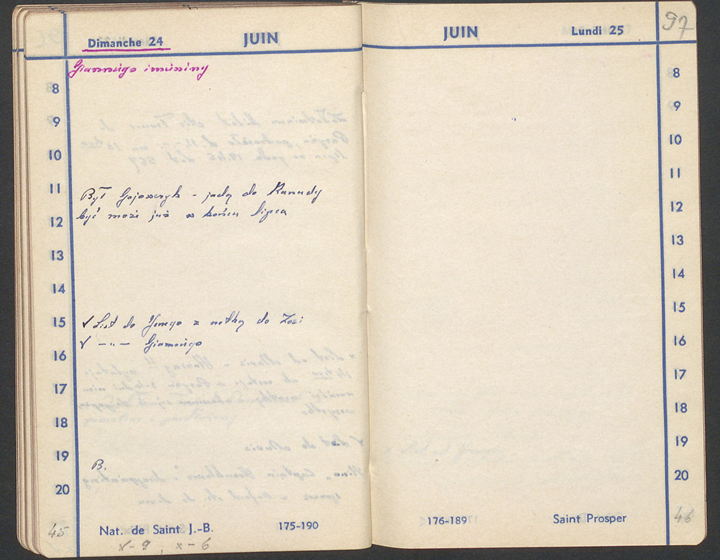 Dimanche 24 JUIN
imieniny
8
9
10
11
Był Gajowczyk - jadą do Kanady
12
być może już w końcu lipca
13
14
15
√ List do Jerzego z notką do Zosi
16
√ —"—
17
18
19
B.
20
45
Nat. de Saint J.-B. 175-190
x-9 ; x-6
JUIN Lundi 25
97
8
9
10
11
12
13
14
15
16
17
18
19
20
176-189 Saint Prosper
46